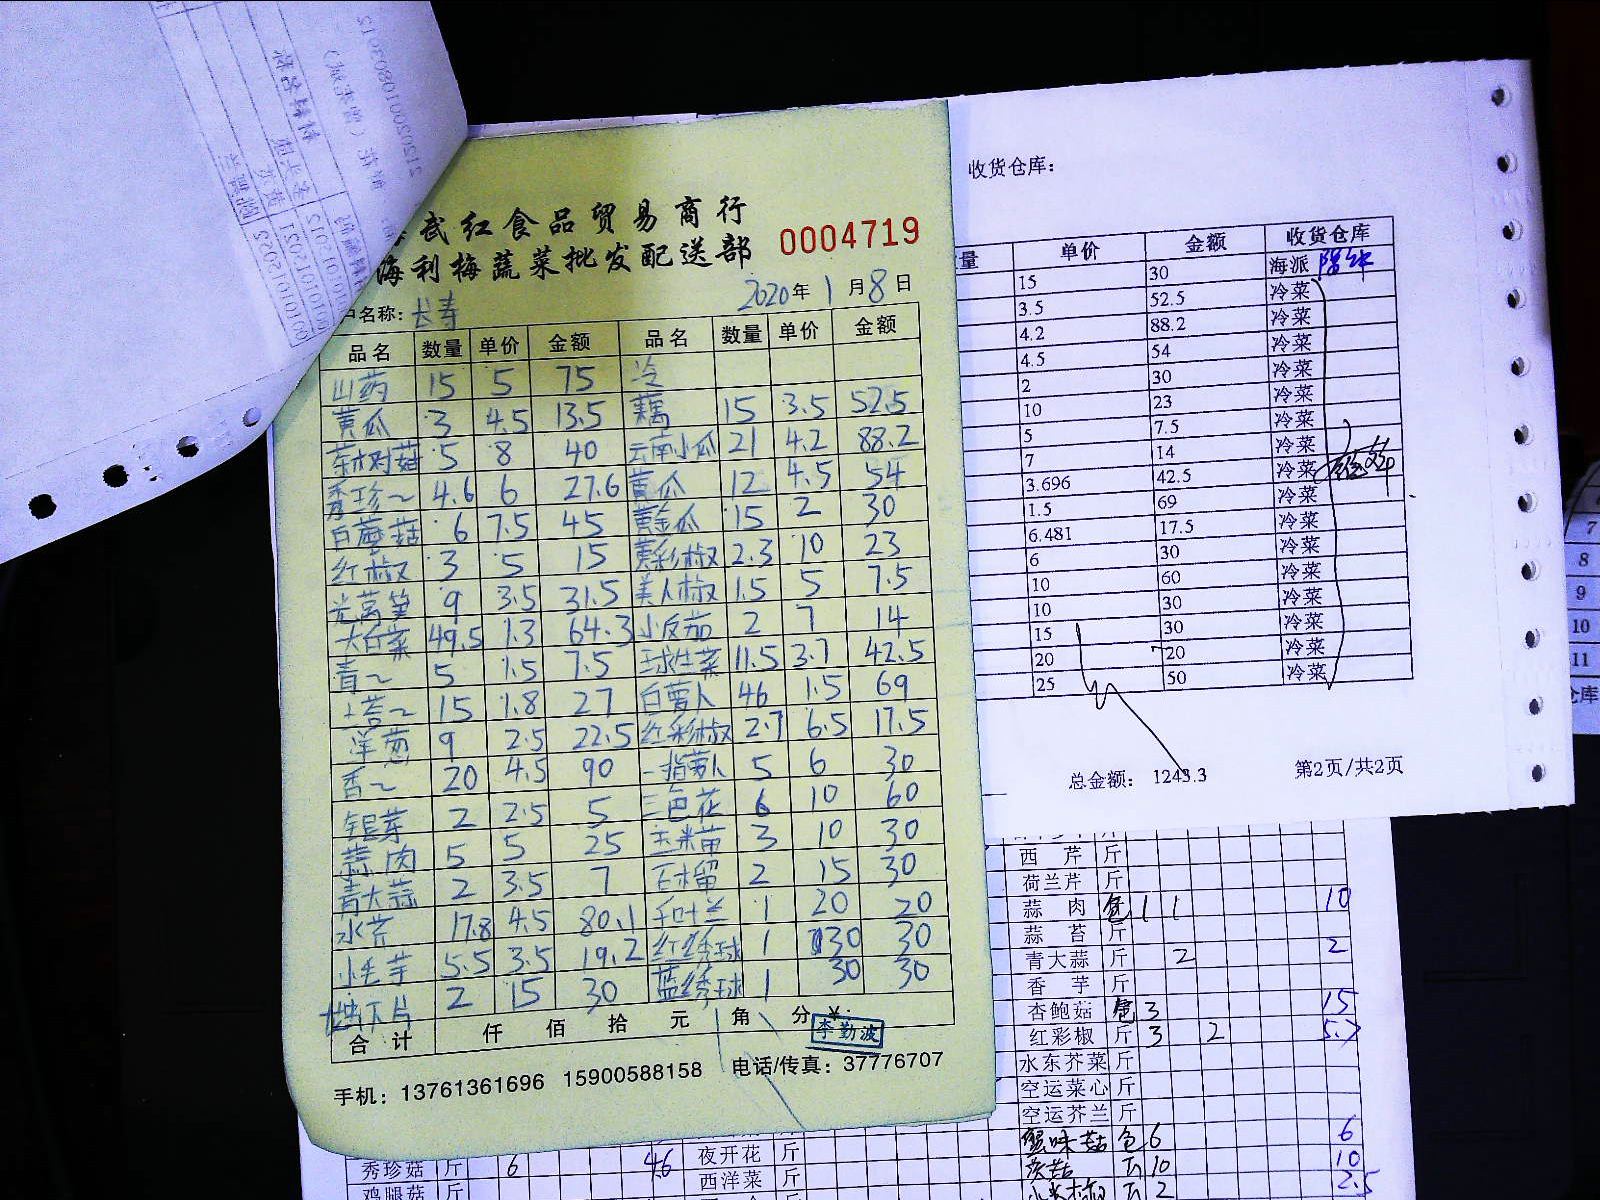 武红食品贸易商行
海利梅蔬菜批发配送部
0004719
户名称：长寿
2020年1月8日
品名 数量 单价 金额 品名 数量 单价 金额
山药 15 5 75 冷
黄瓜 3 4.5 13.5 藕 15 3.5 52.5
茶树菇 5 8 40 云南小瓜 21 4.2 88.2
秀珍~ 4.6 6 27.6 黄瓜 12 4.5 54
白蘑菇 6 7.5 45 黄金瓜 15 2 30
红椒 3 5 15 黄彩椒 2.3 10 23
光莴笋 9 3.5 31.5 美人椒 1.5 5 7.5
大白菜 49.5 1.3 64.3 小皮茄 2 7 14
青~ 5 1.5 7.5 球生菜 11.5 3.7 42.5
15 1.8 27 白萝卜 46 1.5 69
洋葱 9 2.5 22.5 红彩椒 2.7 6.5 17.5
香~ 20 4.5 90 一指萝卜 5 6 30
银芽 2 2.5 5 三色花 6 10 60
蒜肉 5 5 25 玉米苗 3 10 30
青大蒜 2 3.5 7 石榴 2 15 30
水芹 17.8 4.5 80.1 千叶兰 1 20 20
小毛芋 5.5 3.5 19.2 红绣球 1 30 30
2 15 30 蓝绣球 1 30 30
合计 仟 佰 拾 元 角 分 ¥:
李勤波
手机：13761361696 15900588158 电话/传真：37776707
收货仓库：
量 单价 金额 收货仓库
15 30 海派
3.5 52.5 冷菜
4.2 88.2 冷菜
4.5 54 冷菜
2 30 冷菜
10 23 冷菜
5 7.5 冷菜
7 14 冷菜
3.696 42.5 冷菜
1.5 69 冷菜
6.481 17.5 冷菜
6 30 冷菜
10 60 冷菜
10 30 冷菜
15 30 冷菜
20 20 冷菜
25 50 冷菜
总金额：1243.3 第2页/共2页
西芹 斤
荷兰芹 斤
蒜肉 包 1 1 10
蒜苔 斤
青大蒜 斤 2 2
香芋 斤
杏鲍菇 包 3 15
红彩椒 斤 3 2 5.7
水东芥菜 斤
空运菜心 斤
空运芥兰 斤
蟹味菇 包 6 6
10 10
2 2.5
秀珍菇 斤 6 4.6 夜开花 斤
鸡腿菇 斤 西洋菜 斤
7
8
9
10
11
仓库